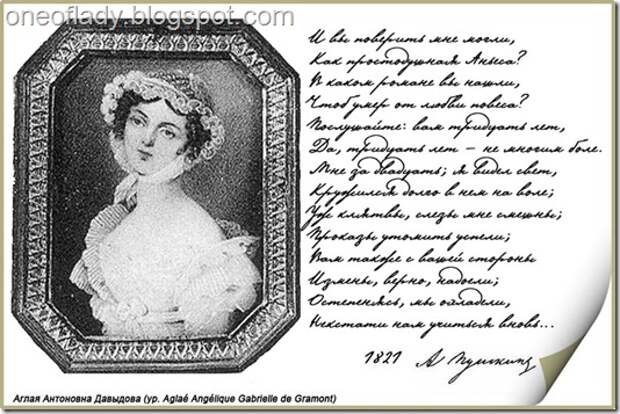 oneoflady.blogspot.com
И вы поверить мне могли,
Как простодушная Аньеса?
В каком романе вы нашли,
Чтоб умер от любви повеса?
Послушайте: вам тридцать лет,
Да, тридцать лет - не многим боле.
Мне за двадцать; я видел свет,
Кружился долго в нем на воле;
Уж клятвы, слезы мне смешны;
Проказы утомить успели;
Вам также с вашей стороны
Измены, верно, надоели;
Остепенясь, мы охладели,
Некстати нам учиться вновь...
1821 А Пушкинъ
Аглая Антоновна Давыдова (ур. Aglaé Angélique Gabrielle de Gramont)